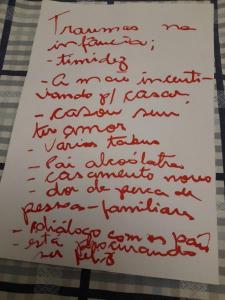 Traumas na
infância;
- timidez
- A mãe incenti-
vando p/ casar,
- casou sem
ter amor
- Vários tabus
- Pai alcoólatra
- casamento novo
- dor de perca de
pessoas - familiares
- diálogo com os pais
está procurando
ser feliz